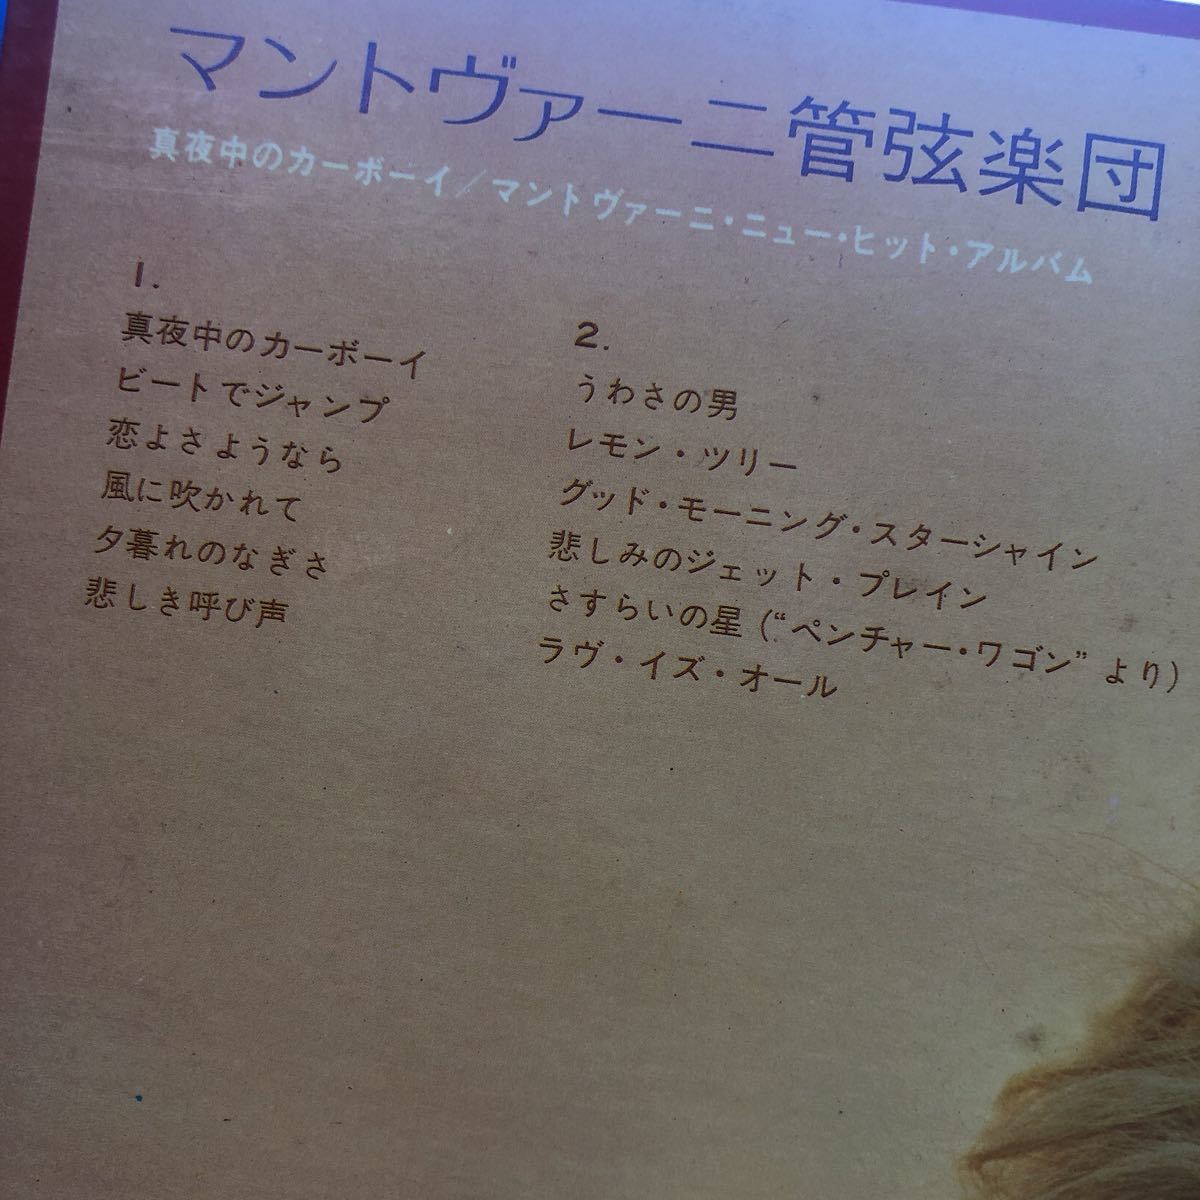 マントヴァーニ管弦楽団
真夜中のカーボーイ/マントヴァーニ・ニュー・ヒット・アルバム
1.
真夜中のカーボーイ
ビートでジャンプ
恋よさようなら
風に吹かれて
夕暮れのなぎさ
悲しき呼び声
2.
うわさの男
レモン・ツリー
グッド・モーニング・スターシャイン
悲しみのジェット・プレイン
さすらいの星(“ペンチャー・ワゴン”より)
ラヴ・イズ・オール